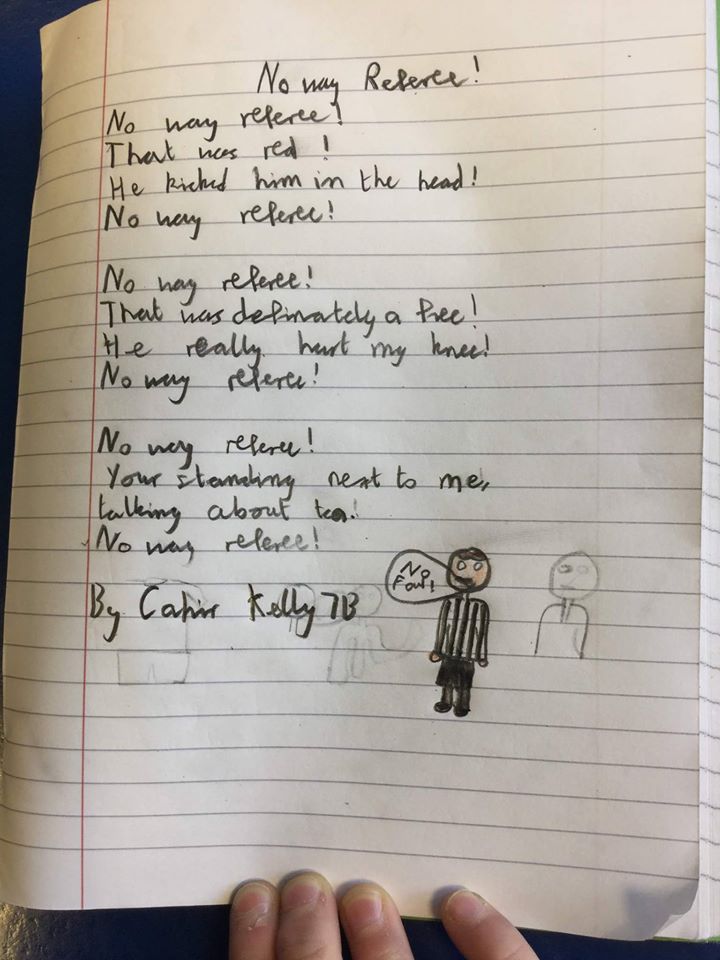 No way Referee!
No way referee!
That was red !
He kicked him in the head!
No way referee!
No way referee!
That was definately a free!
He really hurt my knee!
No way referee!
No way referee!
Your standing next to me,
talking about tea!
No way referee!
No
Foul!
By Cahir Kelly 7B